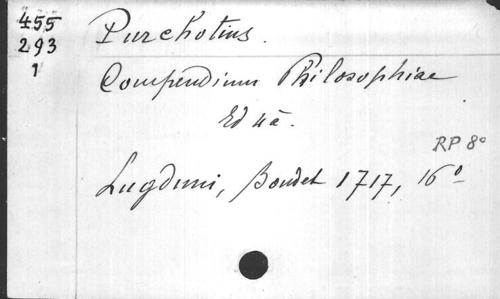 455
293
1
Purchotius.
Compendium Philosophiae
Ed 4a.
RP 8o
Lugduni, Boudet 1717, 16o